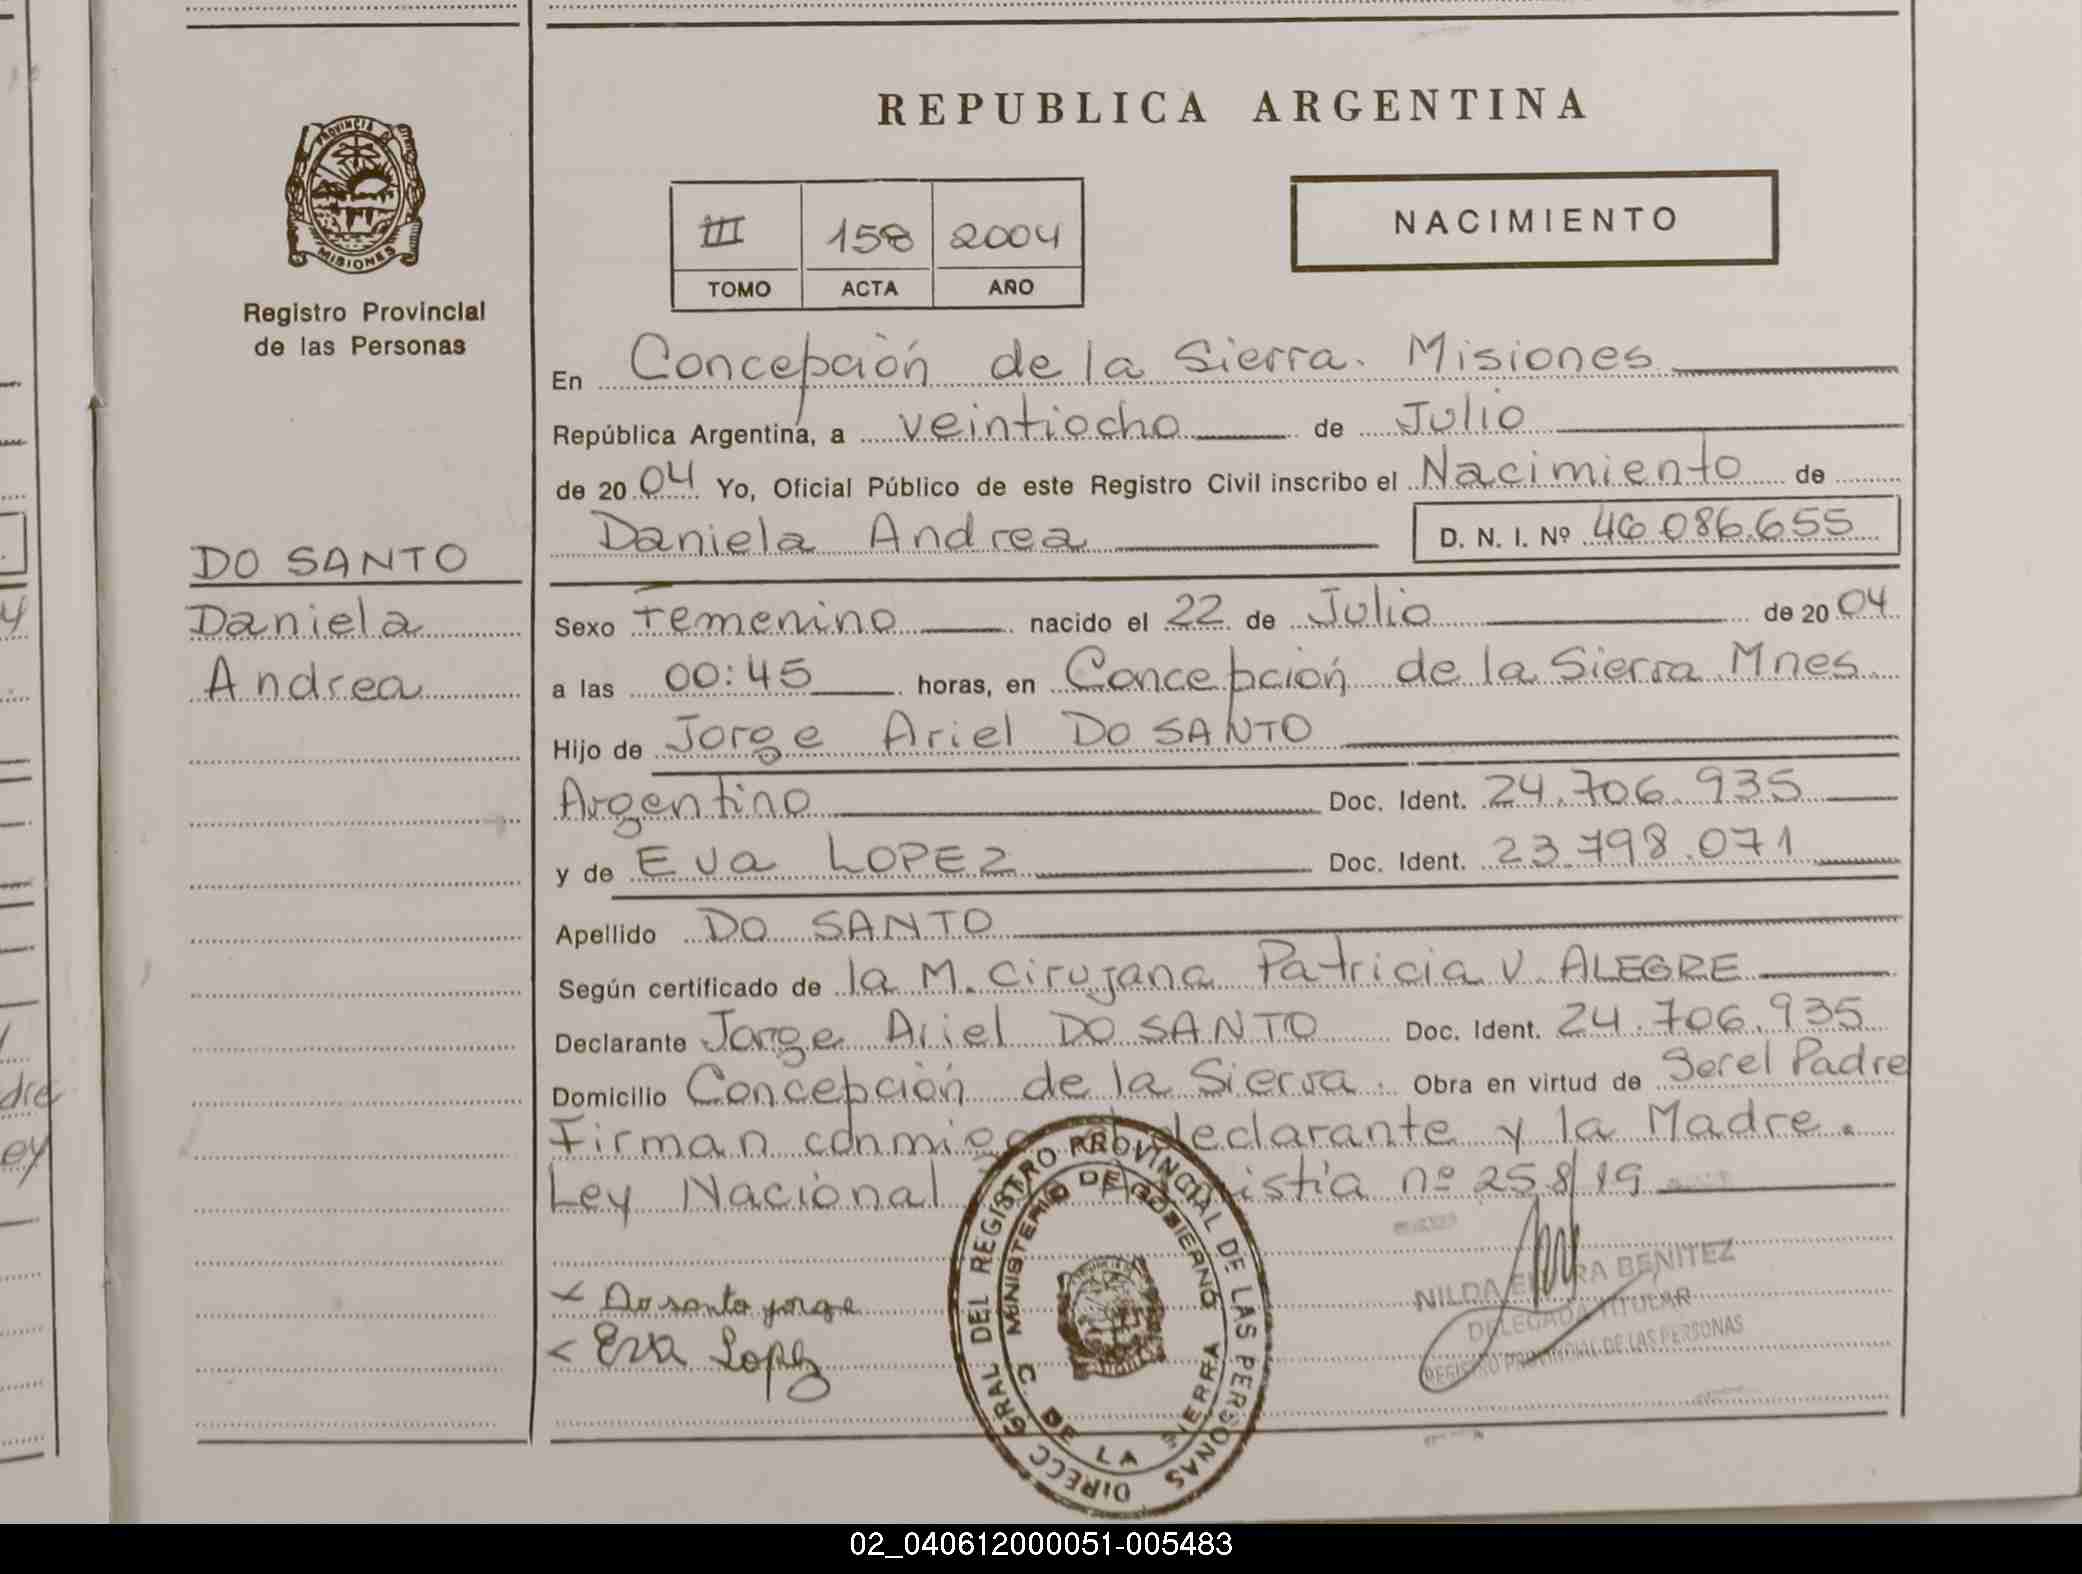 PROVINCIA DE
MISIONES
Registro Provincial
de las Personas
DO SANTO
Daniela
Andrea
REPUBLICA ARGENTINA
III 158 2004
TOMO ACTA AÑO
NACIMIENTO
En Concepción de la Sierra. Misiones
República Argentina, a veintiocho de Julio
de 2004 Yo, Oficial Público de este Registro Civil inscribo el Nacimiento de
Daniela Andrea D. N. I. Nº 46.086.655
Sexo Femenino nacido el 22 de Julio de 2004
a las 00:45 horas, en Concepción de la Sierra Mnes
Hijo de Jorge Ariel DO SANTO
Argentino Doc. Ident. 24.706.935
y de Eva LOPEZ Doc. Ident. 23.798.071
Apellido DO SANTO
Según certificado de la M. Cirujana Patricia V. ALEGRE
Declarante Jorge Ariel DO SANTO Doc. Ident. 24.706.935
Domicilio Concepción de la Sierra. Obra en virtud de Serel Padre
Firman conmigo declarante y la Madre.
Ley Nacional nº 25.819
x Do santo jorge
x Eva Lopez
DIRECC GRAL DEL REGISTRO PROVINCIAL DE LAS PERSONAS
MINISTERIO DE GOBIERNO
C. DE LA SIERRA
NILDA BENITEZ
DELEGADA TITULAR
REGISTRO PROVINCIAL DE LAS PERSONAS
02_040612000051-005483